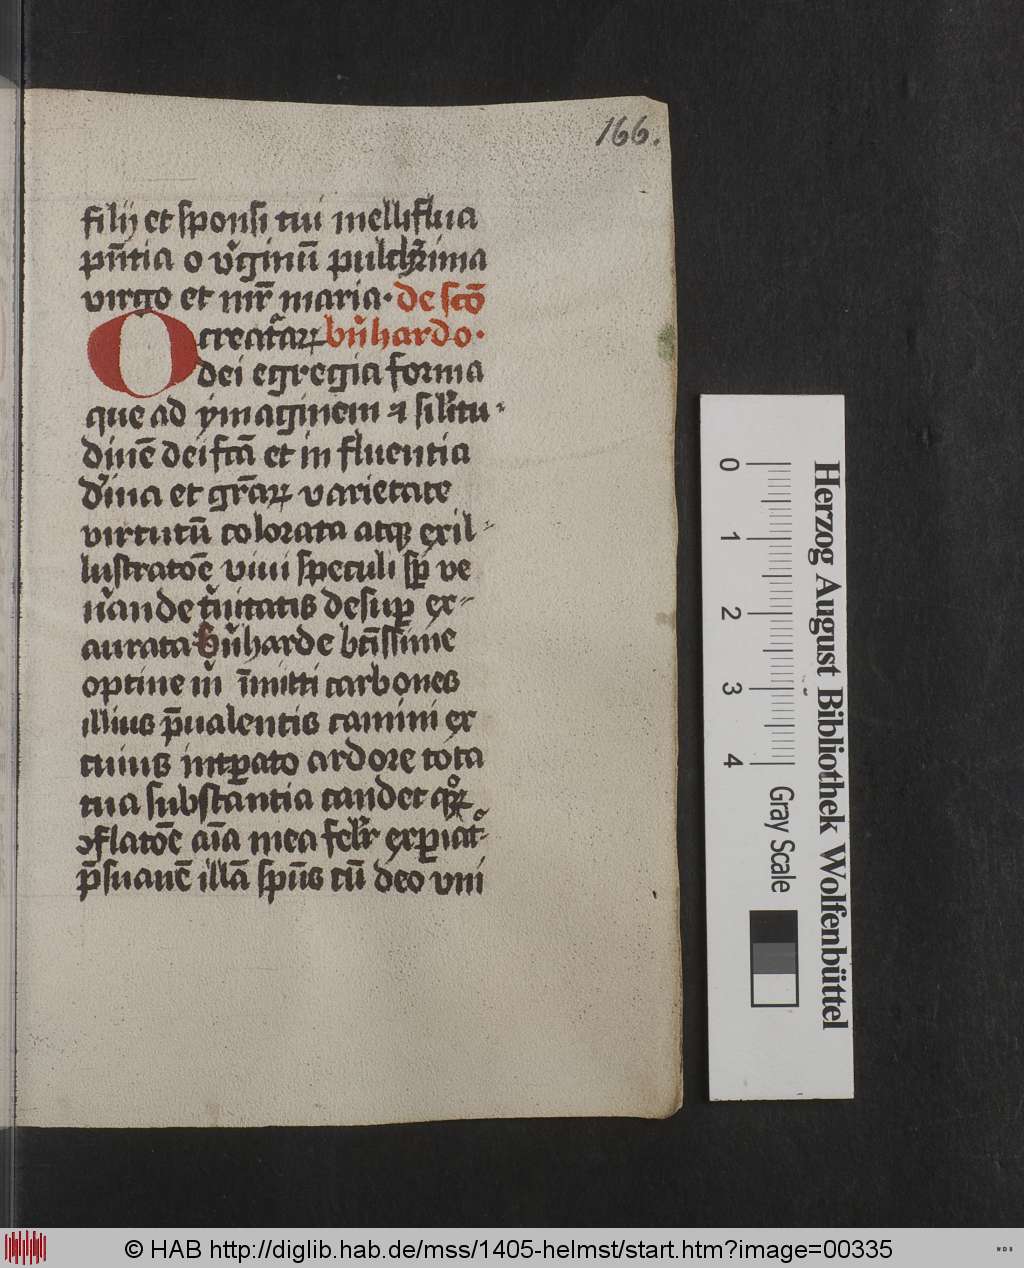 166.
filij et sponsi tui melliflua
pn̄tia o v̓ginū pulch̓rima
virgo et mr̄ maria· de scō
O creat̓aꝝ bn̓hardo·
dei egregia forma
que ad ymaginem ⁊ silītu-
dinē dei fc̄ā et in fluentia
d̓ina et gr̄aꝝ varietate
virtutū colorata atqꝫ exil-
lustratōe viui speculi sp̄ ve
n̓ande t̓nitatis desuꝑ ex-
aurata b̓nharde btīssime
optine in̓ īmitti carbones
illius p̄ualentis camini ex
cuius intꝑato ardore tota
tua substantia candet qͦꝝ
ꝯflatōe aīa mea felr̄ exꝑiatͦ-
p̄suauē illā spūs cū deo vni
0 1 2 3 4
Gray Scale
Herzog August Bibliothek Wolfenbüttel
© HAB http://diglib.hab.de/mss/1405-helmst/start.htm?image=00335